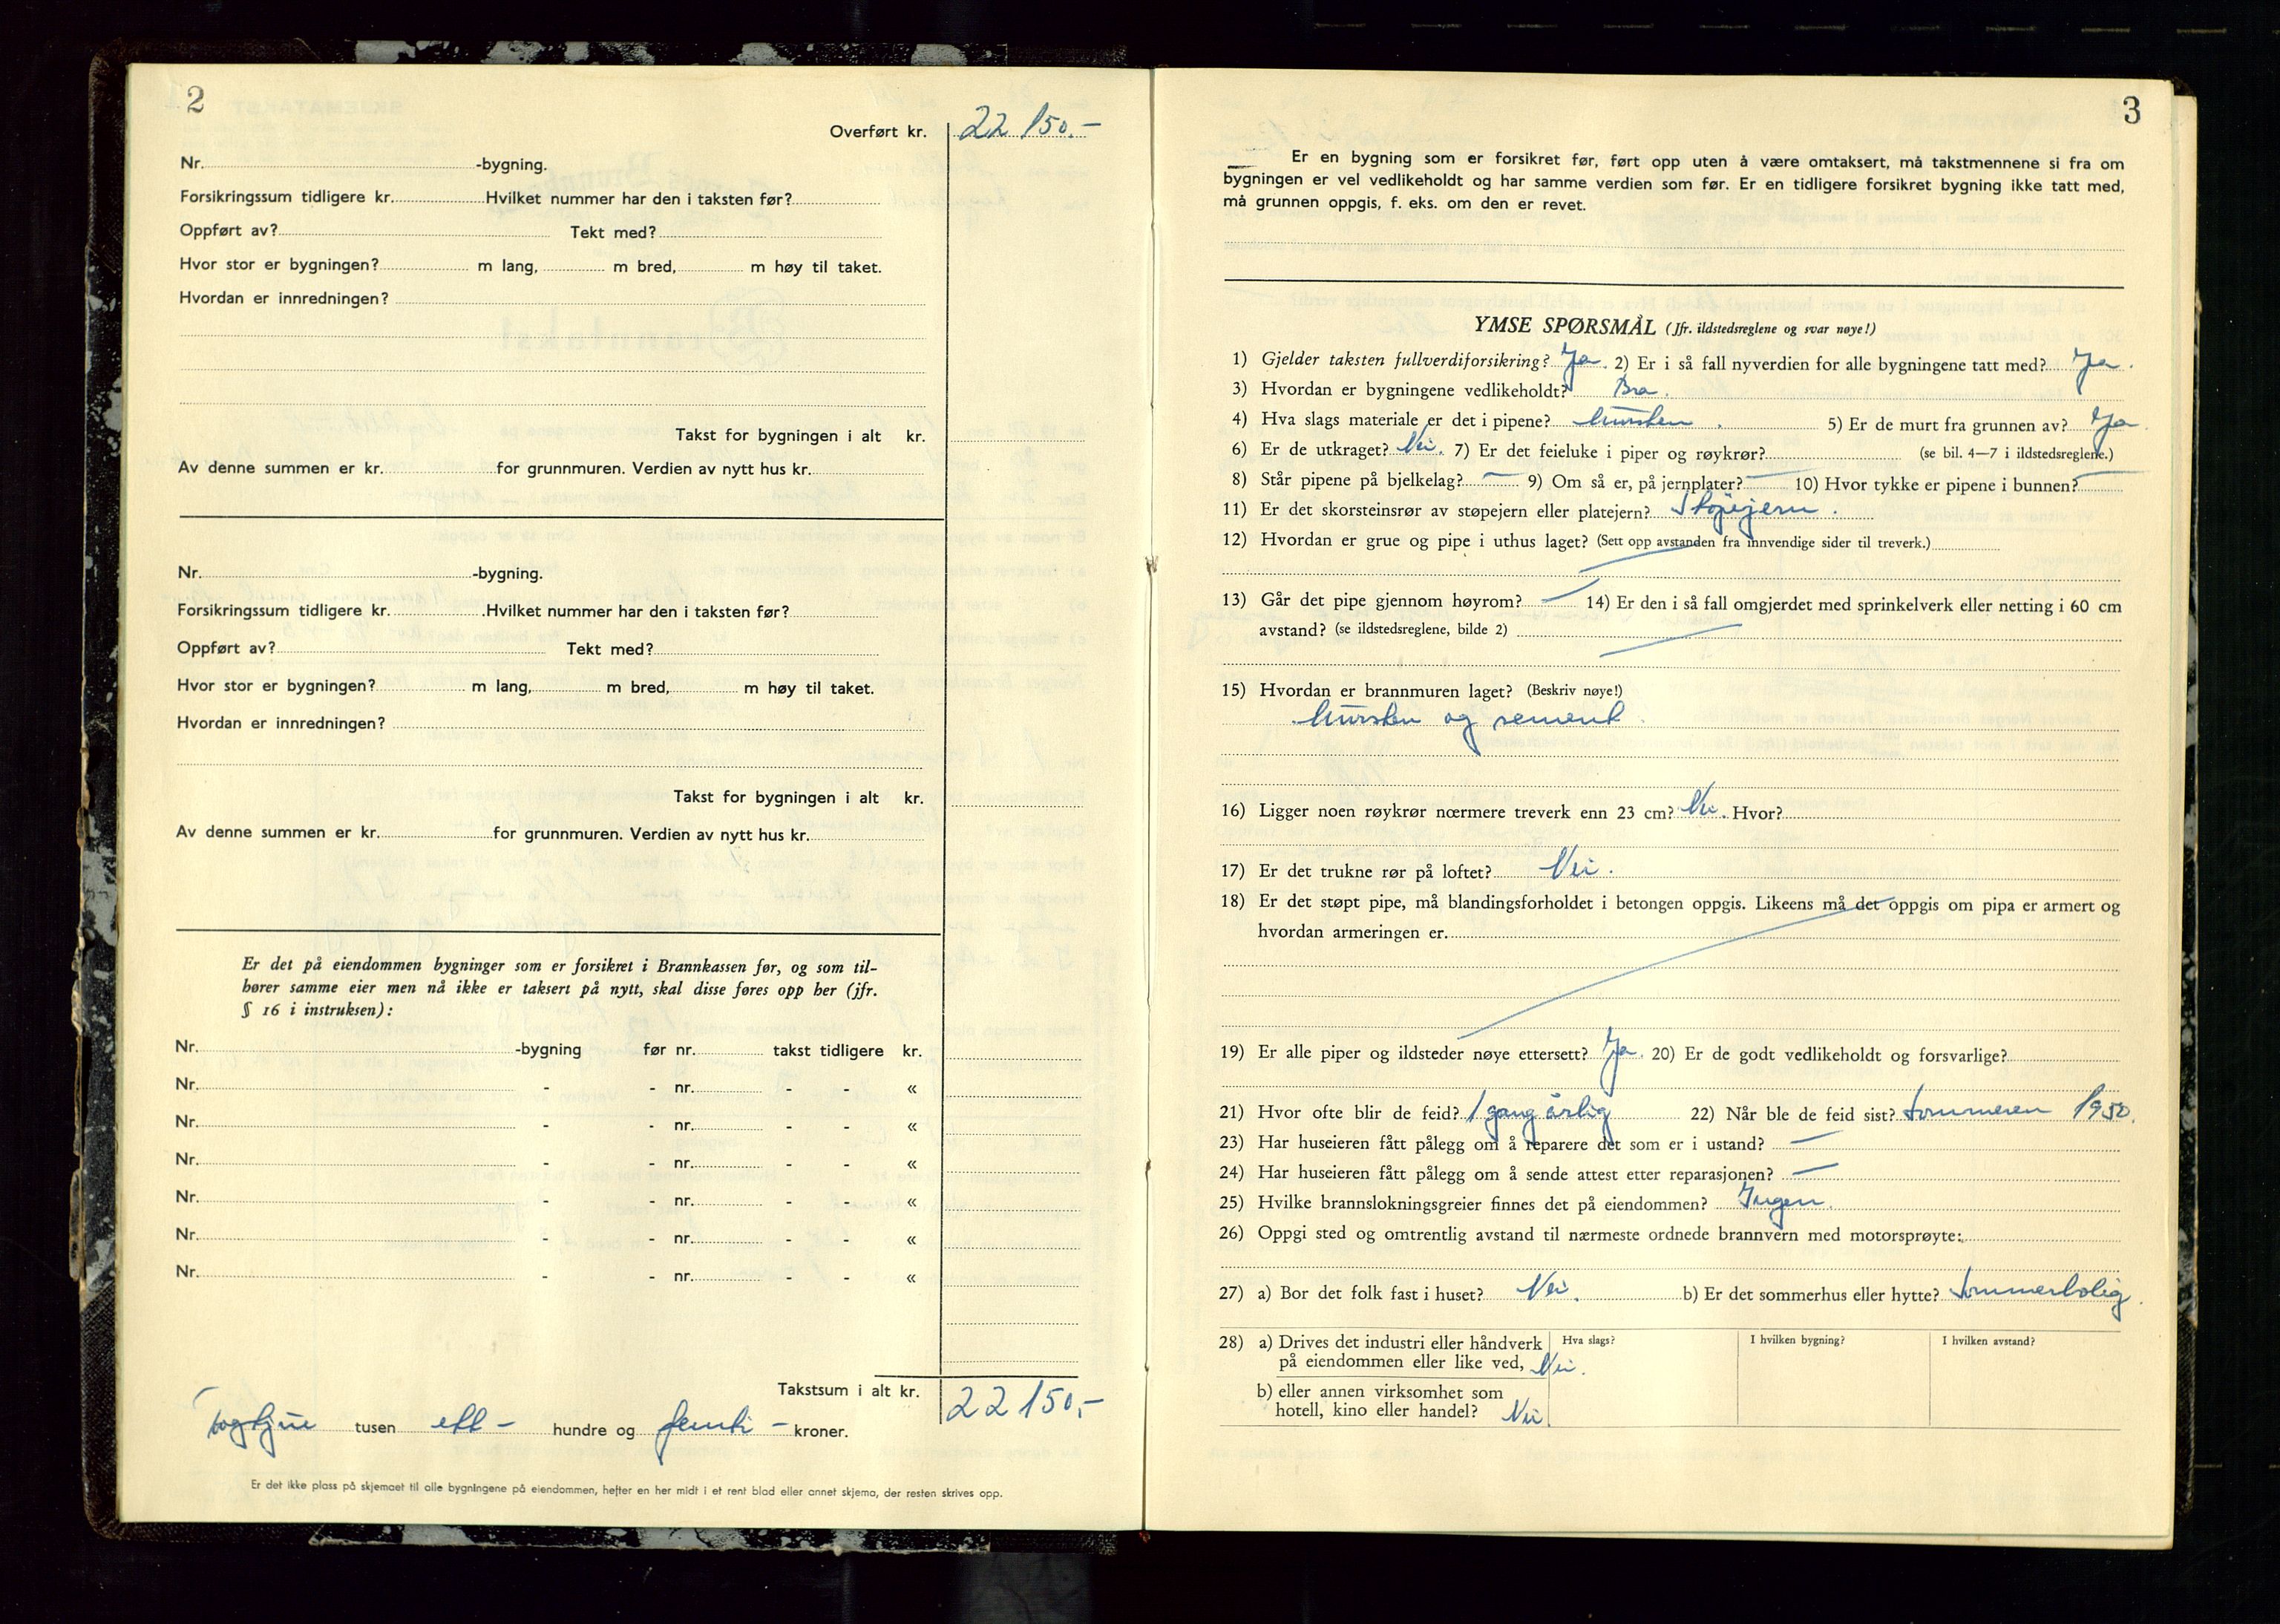 2
Overført kr. 22 150.-
Nr. -bygning.
Forsikringssum tidligere kr. Hvilket nummer har den i taksten før?
Oppført av? Tekt med?
Hvor stor er bygningen? m lang, m bred, m høy til taket.
Hvordan er innredningen?
Takst for bygningen i alt kr.
Av denne summen er kr. for grunnmuren. Verdien av nytt hus kr.
Nr. -bygning.
Forsikringssum tidligere kr. Hvilket nummer har den i taksten før?
Oppført av? Tekt med?
Hvor stor er bygningen? m lang, m bred, m høy til taket.
Hvordan er innredningen?
Takst for bygningen i alt kr.
Av denne summen er kr. for grunnmuren. Verdien av nytt hus kr.
Er det på eiendommen bygninger som er forsikret i Brannkassen før, og som til-
hører samme eier men nå ikke er taksert på nytt, skal disse føres opp her (jfr.
§ 16 i instruksen):
Nr. -bygning før nr. takst tidligere kr.
Nr. - - nr. - - «
Nr. - - nr. - - «
Nr. - - nr. - - «
Nr. - - nr. - - «
Nr. - - nr. - - «
Nr. - - nr. - - «
Takstsum i alt kr. 22 150,-
togtjue tusen ett - hundre og femti - kroner.
Er det ikke plass på skjemaet til alle bygningene på eiendommen, hefter en her midt i et rent blad eller annet skjema, der resten skrives opp.
3
Er en bygning som er forsikret før, ført opp uten å være omtaksert, må takstmennene si fra om
bygningen er vel vedlikeholdt og har samme verdien som før. Er en tidligere forsikret bygning ikke tatt med,
må grunnen oppgis, f. eks. om den er revet.
YMSE SPØRSMÅL (Jfr. ildstedsreglene og svar nøye!)
1) Gjelder taksten fullverdiforsikring? Ja. 2) Er i så fall nyverdien for alle bygningene tatt med? Ja.
3) Hvordan er bygningene vedlikeholdt? Bra.
4) Hva slags materiale er det i pipene? Mursten. 5) Er de murt fra grunnen av? Ja
6) Er de utkraget? Nei. 7) Er det feieluke i piper og røykrør? (se bil. 4—7 i ildstedsreglene.)
8) Står pipene på bjelkelag? — 9) Om så er, på jernplater? — 10) Hvor tykke er pipene i bunnen? —
11) Er det skorsteinsrør av støpejern eller platejern? Støpejern.
12) Hvordan er grue og pipe i uthus laget? (Sett opp avstanden fra innvendige sider til treverk.)
13) Går det pipe gjennom høyrom? — 14) Er den i så fall omgjerdet med sprinkelverk eller netting i 60 cm
avstand? (se ildstedsreglene, bilde 2)
15) Hvordan er brannmuren laget? (Beskriv nøye!)
Mursten og sement
16) Ligger noen røykrør nærmere treverk enn 23 cm? Nei. Hvor?
17) Er det trukne rør på loftet? Nei.
18) Er det støpt pipe, må blandingsforholdet i betongen oppgis. Likeens må det oppgis om pipa er armert og
hvordan armeringen er.
19) Er alle piper og ildsteder nøye ettersett? Ja. 20) Er de godt vedlikeholdt og forsvarlige?
21) Hvor ofte blir de feid? 1 gang årlig 22) Når ble de feid sist? Sommeren 1950.
23) Har huseieren fått pålegg om å reparere det som er i ustand? —
24) Har huseieren fått pålegg om å sende attest etter reparasjonen? —
25) Hvilke brannslokningsgreier finnes det på eiendommen? Ingen.
26) Oppgi sted og omtrentlig avstand til nærmeste ordnede brannvern med motorsprøyte:
27) a) Bor det folk fast i huset? Nei. b) Er det sommerhus eller hytte? Sommerbolig.
28) a) Drives det industri eller håndverk Hva slags? I hvilken bygning? I hvilken avstand?
på eiendommen eller like ved, Nei.
b) eller annen virksomhet som
hotell, kino eller handel? Nei.